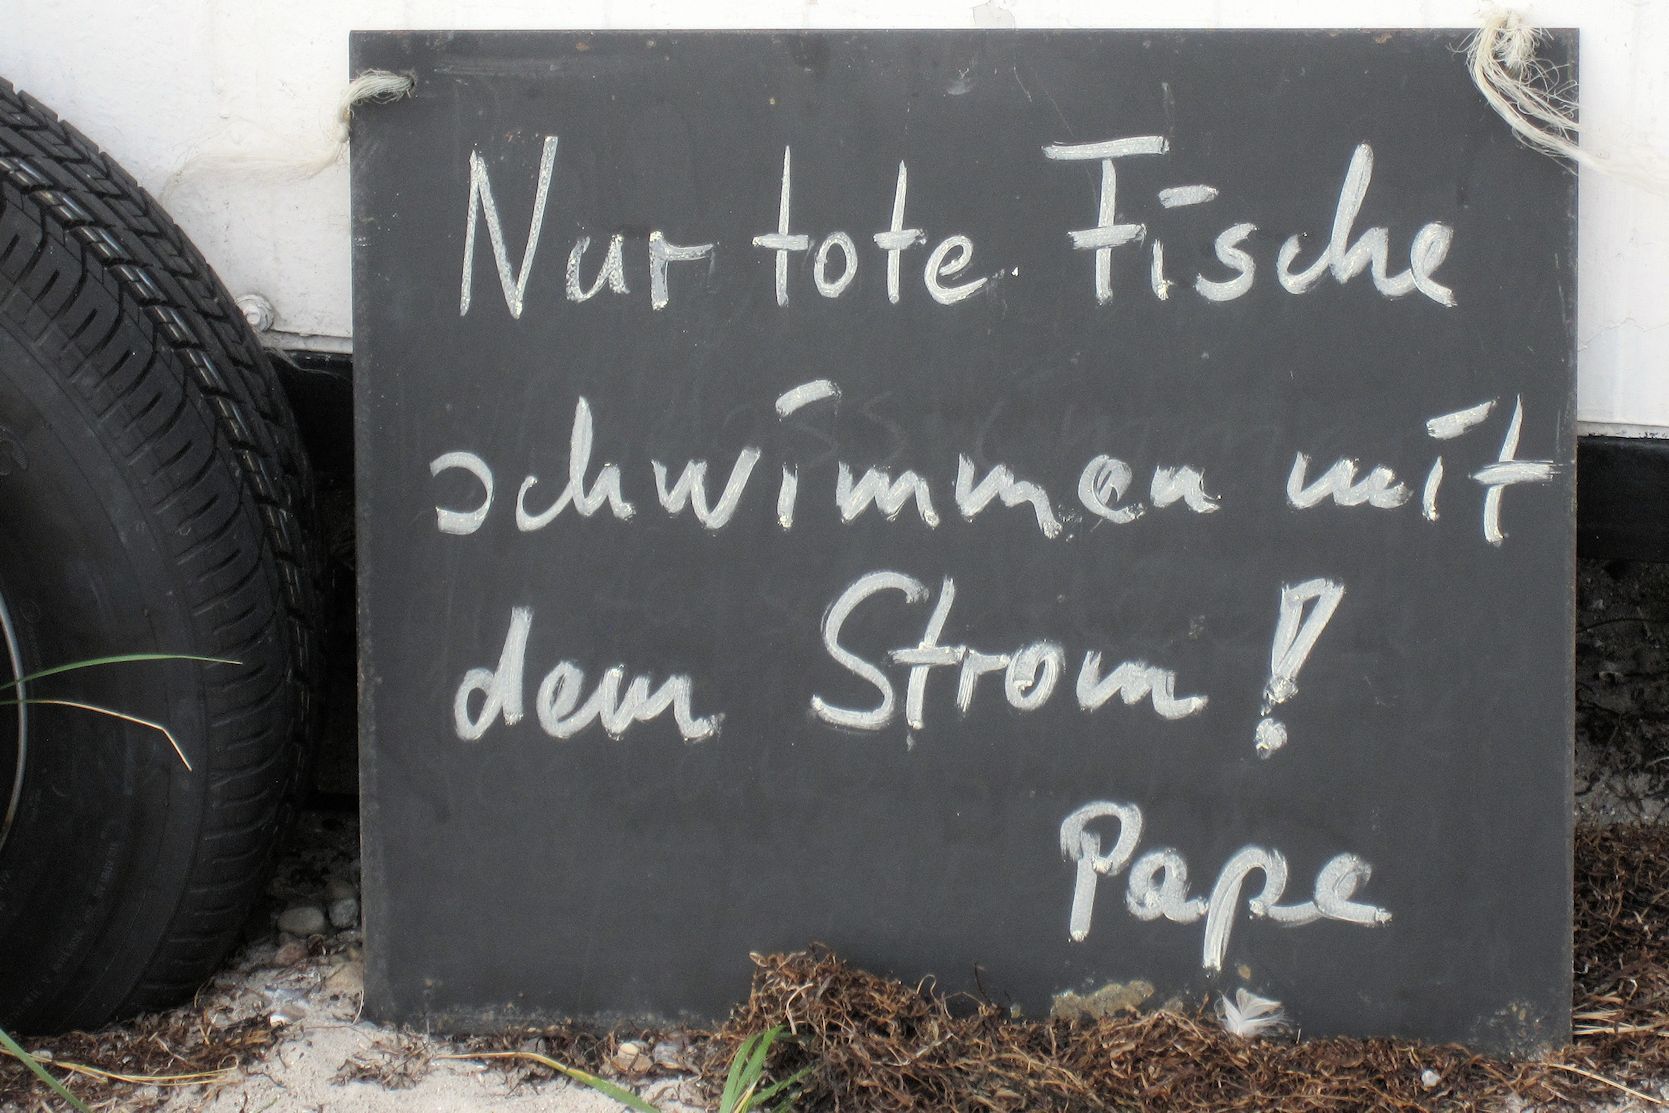 Nur tote Fische
schwimmen mit
dem Strom!
Pape